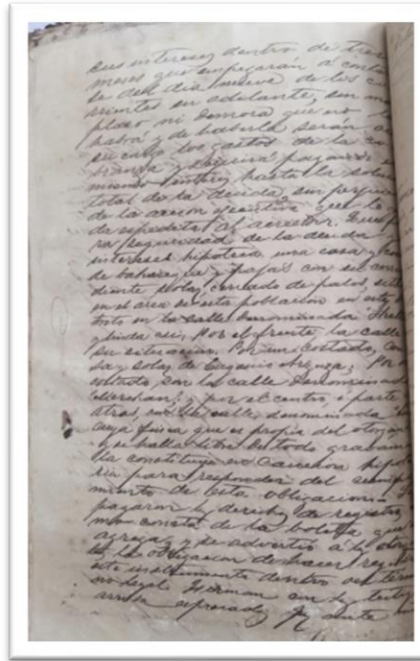 ses intereses dentro de tres
meses que empezarán á conta
se del dia nueve de los co
rrientes en adelante, sin mas
plazo ni demora que no
habrá y de haberla serán de
su cargo los gastos de la co
branza y seguirá pagando el
mismo interes hasta la solu
total de la deuda, sin perjui
de la accion ejecutiva que le
da espedita al acreedor. I
ra seguridad de la deuda
intereses hipoteca una casa
de bahareque y pajas con su corres
diente solar, cercado de palos, sit
en el area de esta poblacion en este
trito en la calle denominada
y linda asi; Por el frente la calle
su situacion. Por un costado, ca
sa y solar de Eugenio; Por
costado, con la calle denominada
y por el centro, ó parte
atras, con la calle denominada
cuya finca que es propia del otorgan
y se halla libre de todo gravam
la constituye en hipot
para responder del cumpli
miento de esta obligacion.
pagaron los derechos de registro
consta de la boleta que
agrega, y se advertió á los otorg
la obligacion de hacer
este instrumento dentro del term
no legal. Firman con los testigos
arriba espresados, ante